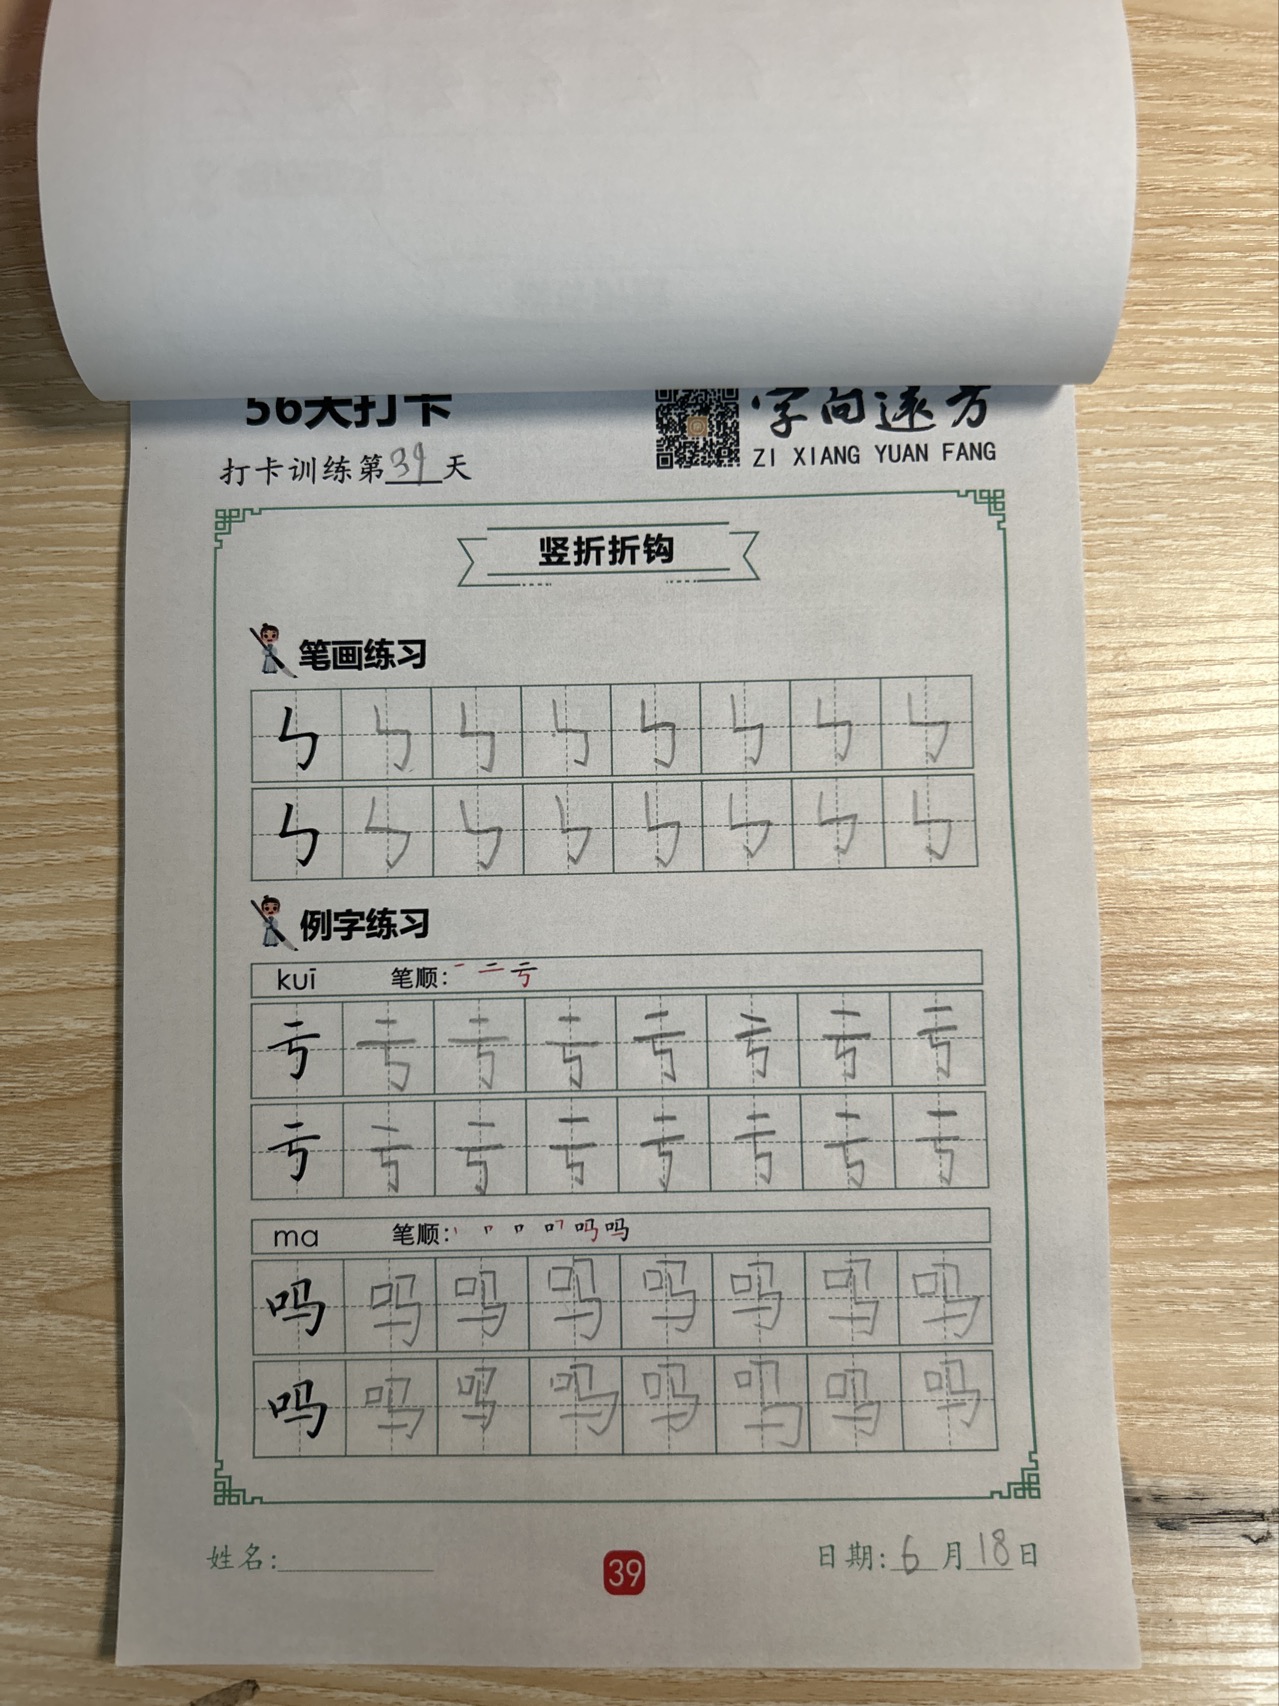 56天打卡
字向远方
ZI XIANG YUAN FANG
打卡训练第39天
竖折折钩
笔画练习
ㄣ ㄣ ㄣ ㄣ ㄣ ㄣ ㄣ ㄣ
ㄣ ㄣ ㄣ ㄣ ㄣ ㄣ ㄣ ㄣ
例字练习
kuī 笔顺: 一 二 亏
亏 亏 亏 亏 亏 亏 亏 亏
亏 亏 亏 亏 亏 亏 亏 亏
ma 笔顺: 丨 吗
吗 吗 吗 吗 吗 吗 吗 吗
吗 吗 吗 吗 吗 吗 吗 吗
姓名:
39
日期: 6 月 18 日